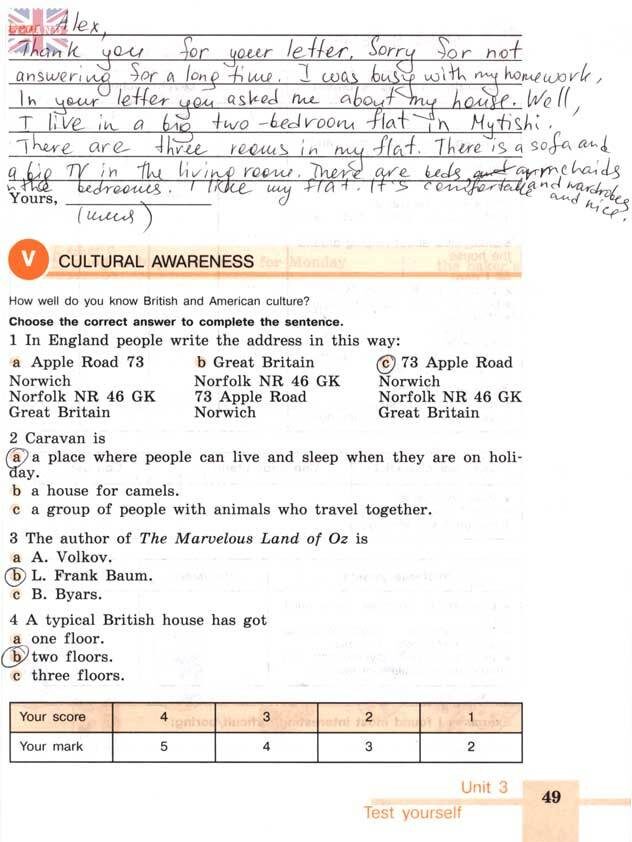 Dear Alex,
Thank you for your letter. Sorry for not
answering for a long time. I was busy with my homework.
In your letter you asked me about my house. Well,
I live in a big two-bedroom flat in Mytishi.
There are three rooms in my flat. There is a sofa and
a big TV in the living room. There are beds, armchaids
and wardrobes
in the bedrooms. I like my flat. It's comfortable and nice.
Yours,
(имя)
V CULTURAL AWARENESS
How well do you know British and American culture?
Choose the correct answer to complete the sentence.
1 In England people write the address in this way:
a Apple Road 73 b Great Britain c 73 Apple Road
Norwich Norfolk NR 46 GK Norwich
Norfolk NR 46 GK 73 Apple Road Norfolk NR 46 GK
Great Britain Norwich Great Britain
2 Caravan is
a a place where people can live and sleep when they are on holi-
day.
b a house for camels.
c a group of people with animals who travel together.
3 The author of The Marvelous Land of Oz is
a A. Volkov.
b L. Frank Baum.
c B. Byars.
4 A typical British house has got
a one floor.
b two floors.
c three floors.
Your score 4 3 2 1
Your mark 5 4 3 2
Unit 3
Test yourself
49